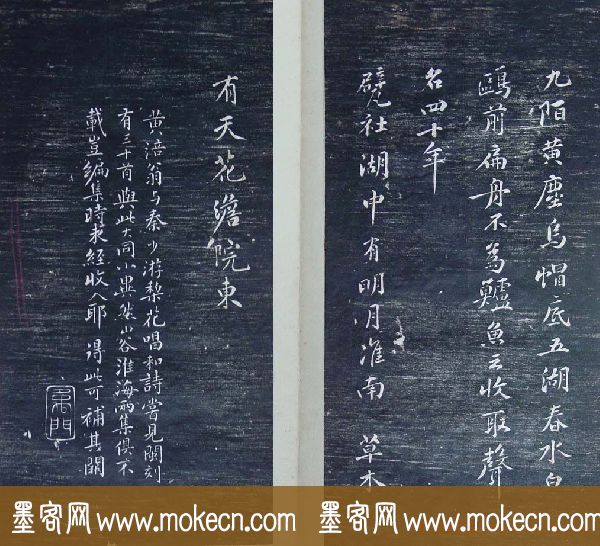 九陌黄塵烏帽底五湖春水白
鷗前扁舟不為鱸魚去收取聲
名四十年
甓社湖中有明月淮南草木
有天花澹院東
黄涪翁与秦少游梨花唱和詩嘗見閣刻
有三十首與此大同小異然山谷淮海兩集俱不
載豈編集時未經收入耶得此可補其闕
墨客网 www.mokecn.com
墨客网 www.mokecn.com